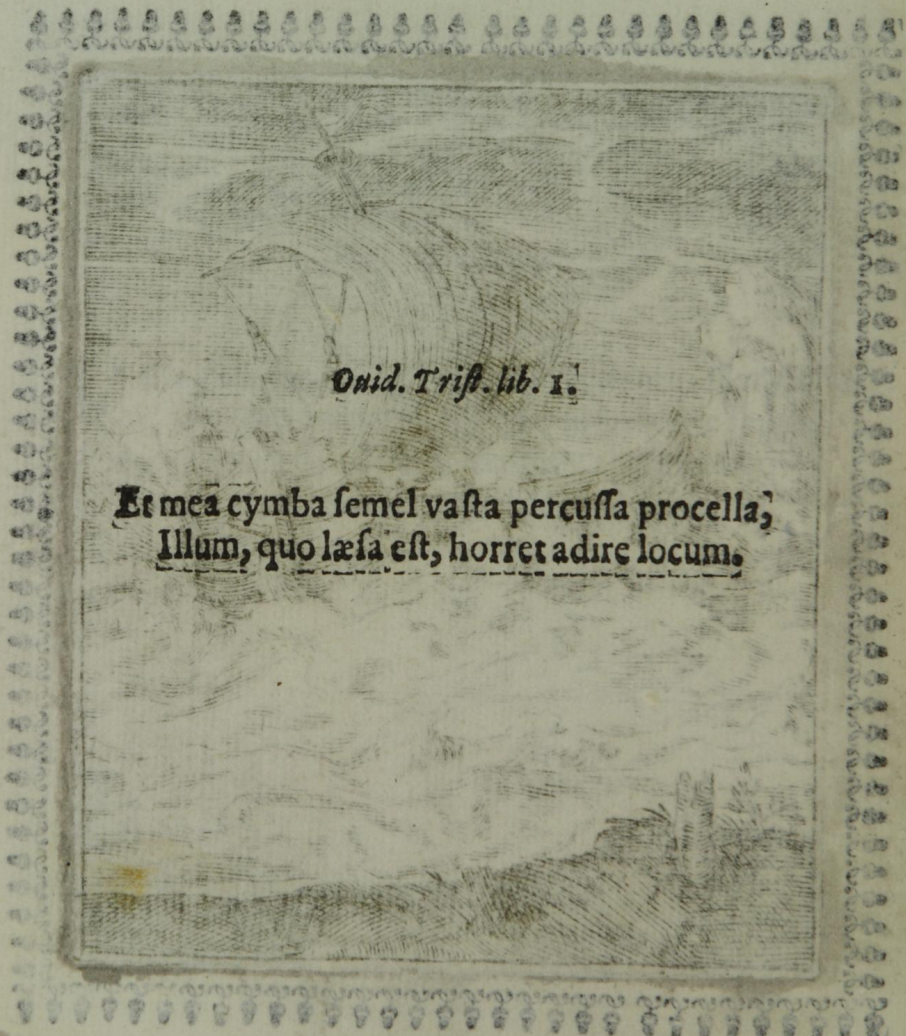 Ouid. Trist. lib. 1.
Et mea cymba ſemel vaſta percuſſa procella,
Illum, quo læſa eſt, horret adire locum.